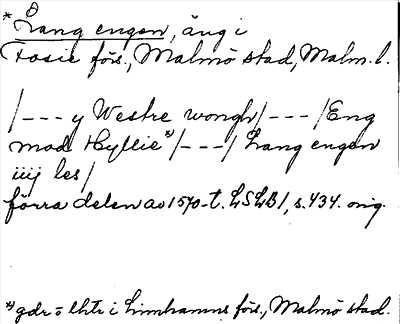 * Lang engen, äng i
Fosie förs., Malmö stad, Malm. l.
/--- y Westre wongh/---/Eng
mod Hyllie*)/---/Lang engen
iiij les/
förra delen av 1570-t. LSLB1, s. 434. orig.
*) gdr o lhtr i Limhamns förs., Malmö stad.